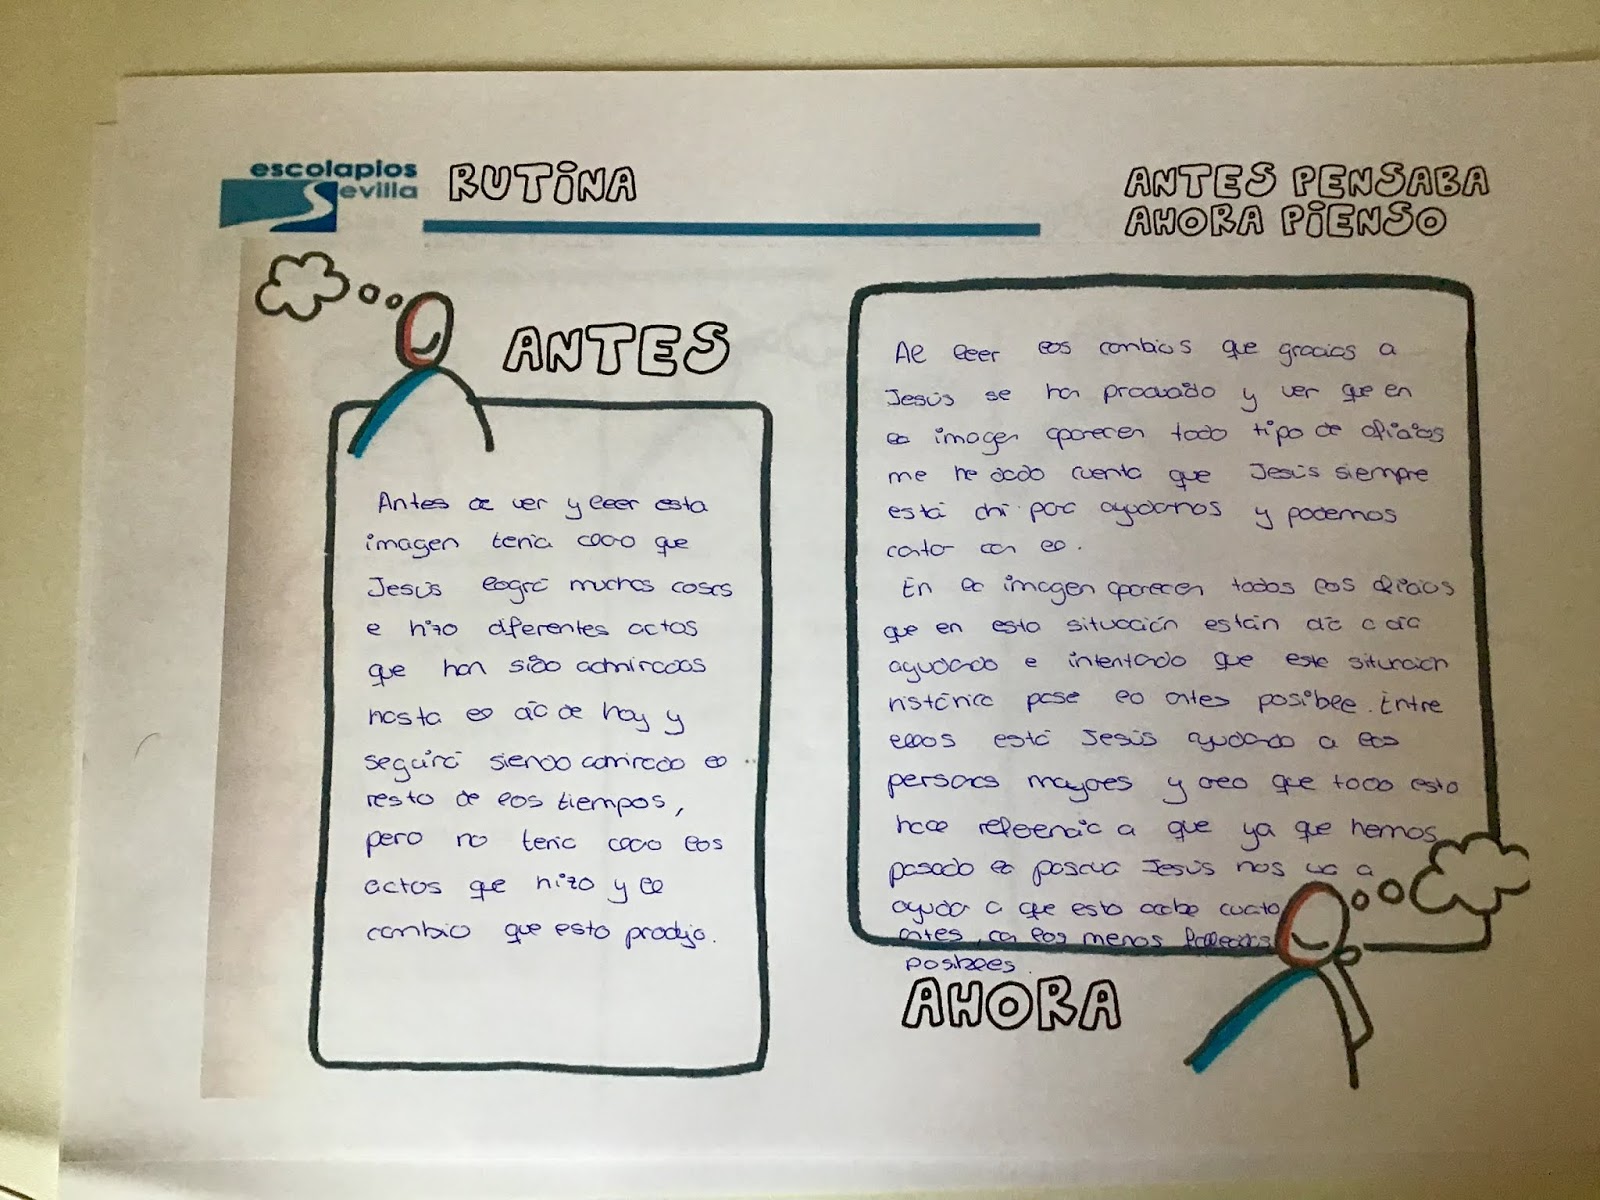 escolapios
sevilla
RUTINA
ANTES PENSABA
AHORA PIENSO
ANTES
Antes de ver y leer esta
imagen tenía claro que
Jesús logró muchas cosas
e hizo diferentes actos
que han sido admirados
hasta el día de hoy y
seguirá siendo admirado el
resto de los tiempos,
pero no tenía claro los
actos que hizo y el
cambio que esto produjo.
Al leer los cambios que gracias a
Jesús se ha producido y ver que en
la imagen aparecen todo tipo de oficios
me he dado cuenta que Jesús siempre
está ahí para ayudarnos y podemos
contar con el.
En la imagen aparecen todos los oficios
que en esta situación están día a día
ayudando e intentado que esta situración
histórica pase lo antes posible. Entre
ellos está Jesús ayudando a las
personas mayores y creo que todo esto
hace referencia a que ya que hemos
pasado la pascua Jesús nos va a
ayudar a que esto acabe cuanto
antes, con los menos fallecidos
posibles.
AHORA